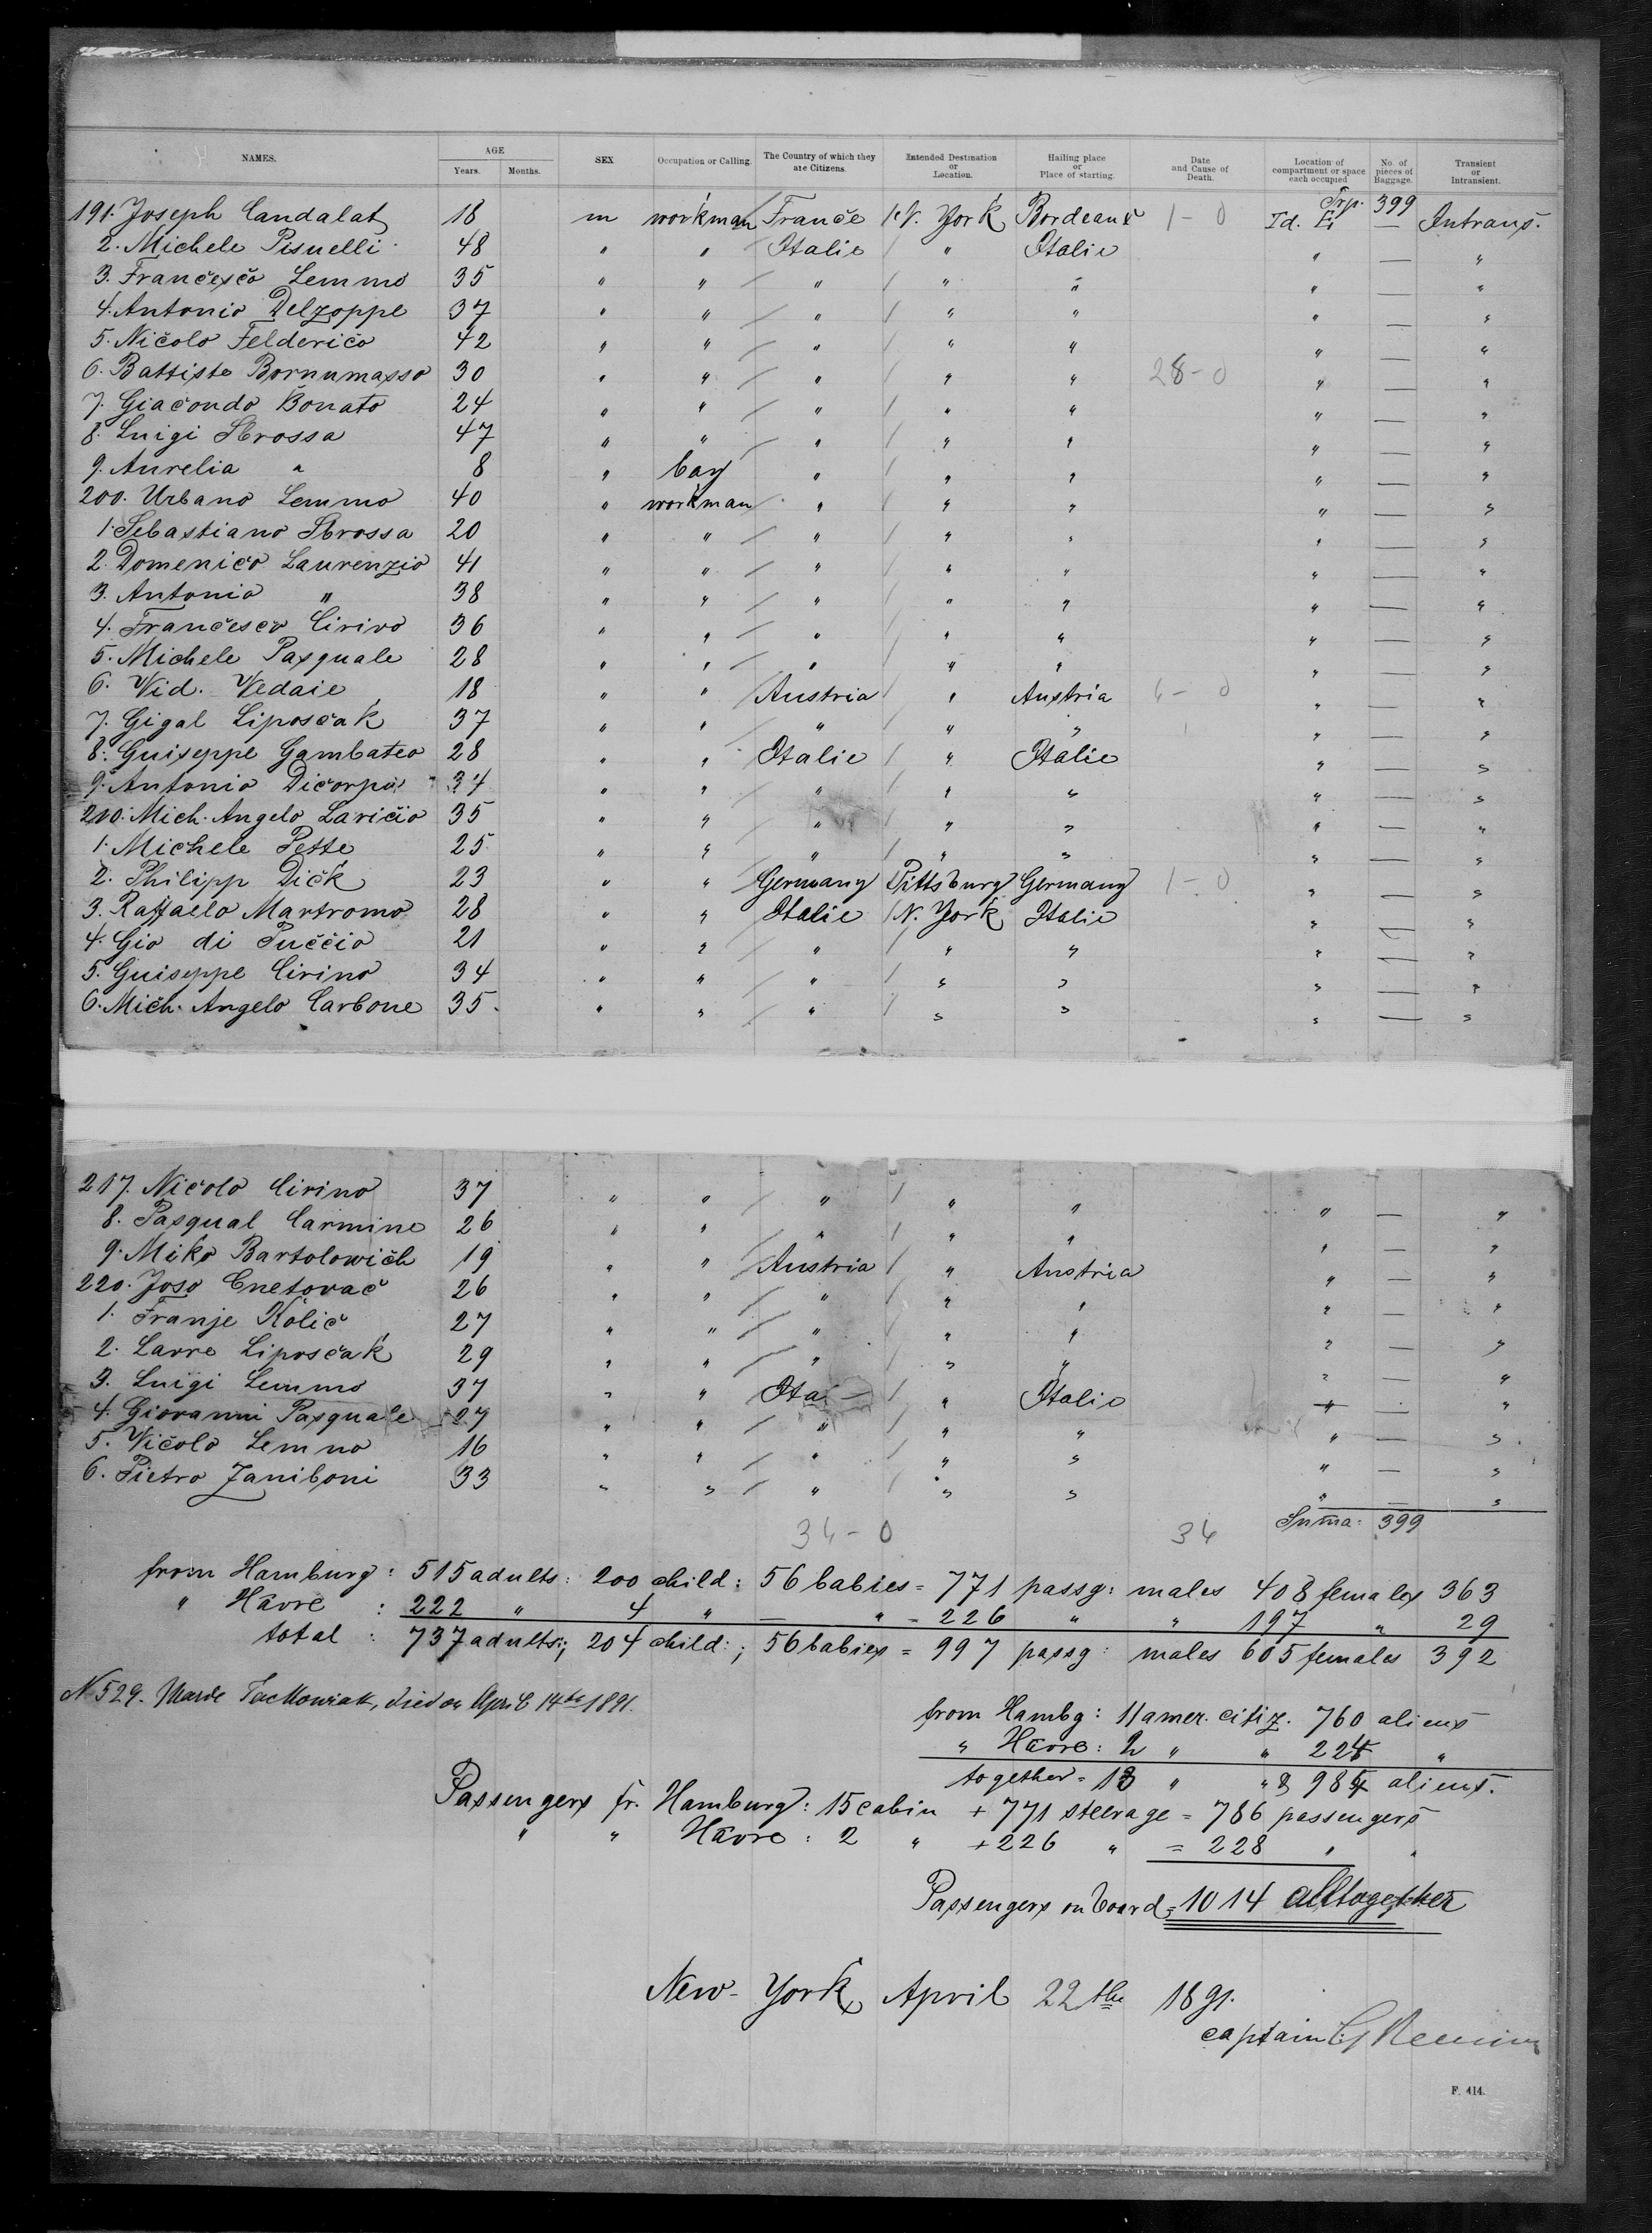 NAMES. AGE Years. Months. SEX Occupation or Calling. The Country of which they are Citizens. Intended Destination or Location. Hailing place or Place of starting. Date and Cause of Death. Location of compartment or space each occupied No. of pieces of Baggage. Transient or Intransient.
Trp. 399
191. Joseph Candalat 18 m workman France N. York Bordeaux 1-0 Td. E. — Intrans.
2. Michele Pisuelli 48 " " Italie " Italie " — "
3. Francesco Lemmo 35 " " " " " " — "
4. Antonio Delzoppe 37 " " " " " " — "
5. Nicolo Felderico 42 " " " " " " — "
6. Battiste Bornumasso 30 " " " " " 28-0 " — "
7. Giacondo Bonato 24 " " " " " " — "
8. Luigi Sbrossa 47 " " " " " " — "
9. Aurelia " 8 " boy " " " " — "
200. Urbano Lemmo 40 " workman " " " " — "
1. Sebastiano Sbrossa 20 " " " " " " — "
2. Domenico Laurenzio 41 " " " " " " — "
3. Antonio " 38 " " " " " " — "
4. Francesco Cirino 36 " " " " " " — "
5. Michele Pasquale 28 " " " " " " — "
6. Vid. Vedaie 18 " " Austria " Austria 6-0 " — "
7. Gigal Liposcak 37 " " " " " " — "
8. Guiseppe Gambateo 28 " " Italie " Italie " — "
9. Antonio Dicorpo 34 " " " " " " — "
210. Mich. Angelo Laricio 35 " " " " " " — "
1. Michele Pette 25 " " " " " " — "
2. Philipp Dick 23 " " Germany Pittsburg Germany 1-0 " — "
3. Raffaelo Martromo 28 " " Italie N. York Italie " — "
4. Gio di Puccio 21 " " " " " " — "
5. Guiseppe Cirino 34 " " " " " " — "
6. Mich. Angelo Carbone 35 " " " " " " — "
217. Nicolo Cirino 37 " " " " " " — "
8. Pasqual Carmine 26 " " " " " " — "
9. Miko Bartolowich 19 " " Austria " Austria " — "
220. Joso Cnetovac 26 " " " " " " — "
1. Franje Kolic 27 " " " " " " — "
2. Lavro Liposcak 29 " " " " " " — "
3. Luigi Lemmo 37 " " Ita " Italie " — "
4. Giovanni Pasquale 27 " " " " " " — "
5. Nicolo Lemno 16 " " " " " " — "
6. Pietro Zaniboni 33 " " " " " " — "
34-0 34 Suma: 399
from Hamburg: 515 adults: 200 child: 56 babies = 771 passg: males 408 females 363
" Havre : 222 " 4 " — " = 226 " " 197 " 29
total : 737 adults; 204 child:; 56 babies = 997 passg: males 605 females 392
N 529. died on April 14th 1891.
from Hambg: 11 amer. citiz. 760 aliens
" Havre: 2 " " 224 "
together = 13 " " & 984 aliens.
Passengers fr. Hamburg: 15 cabin + 771 steerage = 786 passengers
" " Havre: 2 " + 226 " = 228 " "
Passengers on board = 1014 alltogether
New-York April 22the 1891.
captain
F. 414.